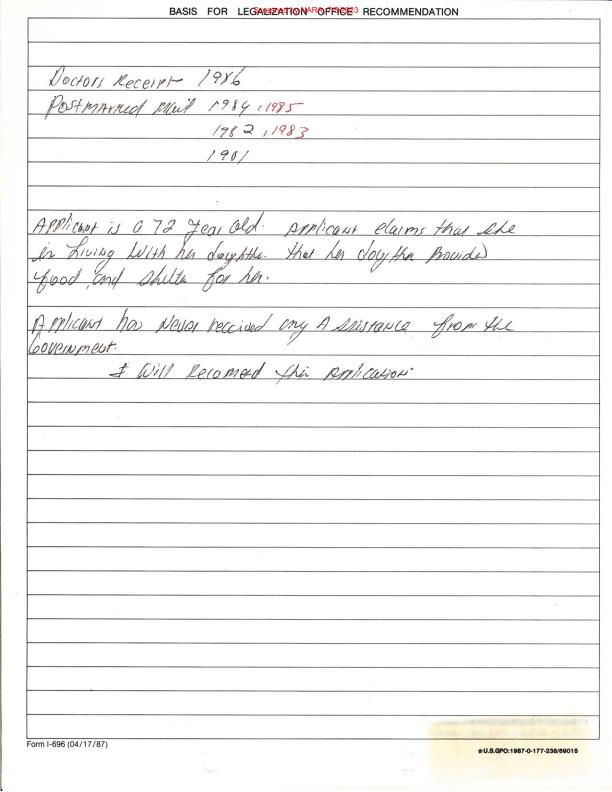 BASIS FOR LEGALIZATION OFFICE RECOMMENDATION
Doctors Receipt 1986
Postmarked Mail 1984, 1985
1982, 1983
1981
Applicant is a 72 year old. Applicant claims that she
is Living with her daughter. that her daughter Provides
food and shelter for her.
Applicant has Never received any Assistance from the
Government.
I Will Recomend this Application.
Form I-696 (04/17/87)
★U.S.GPO:1987-0-177-238/69015